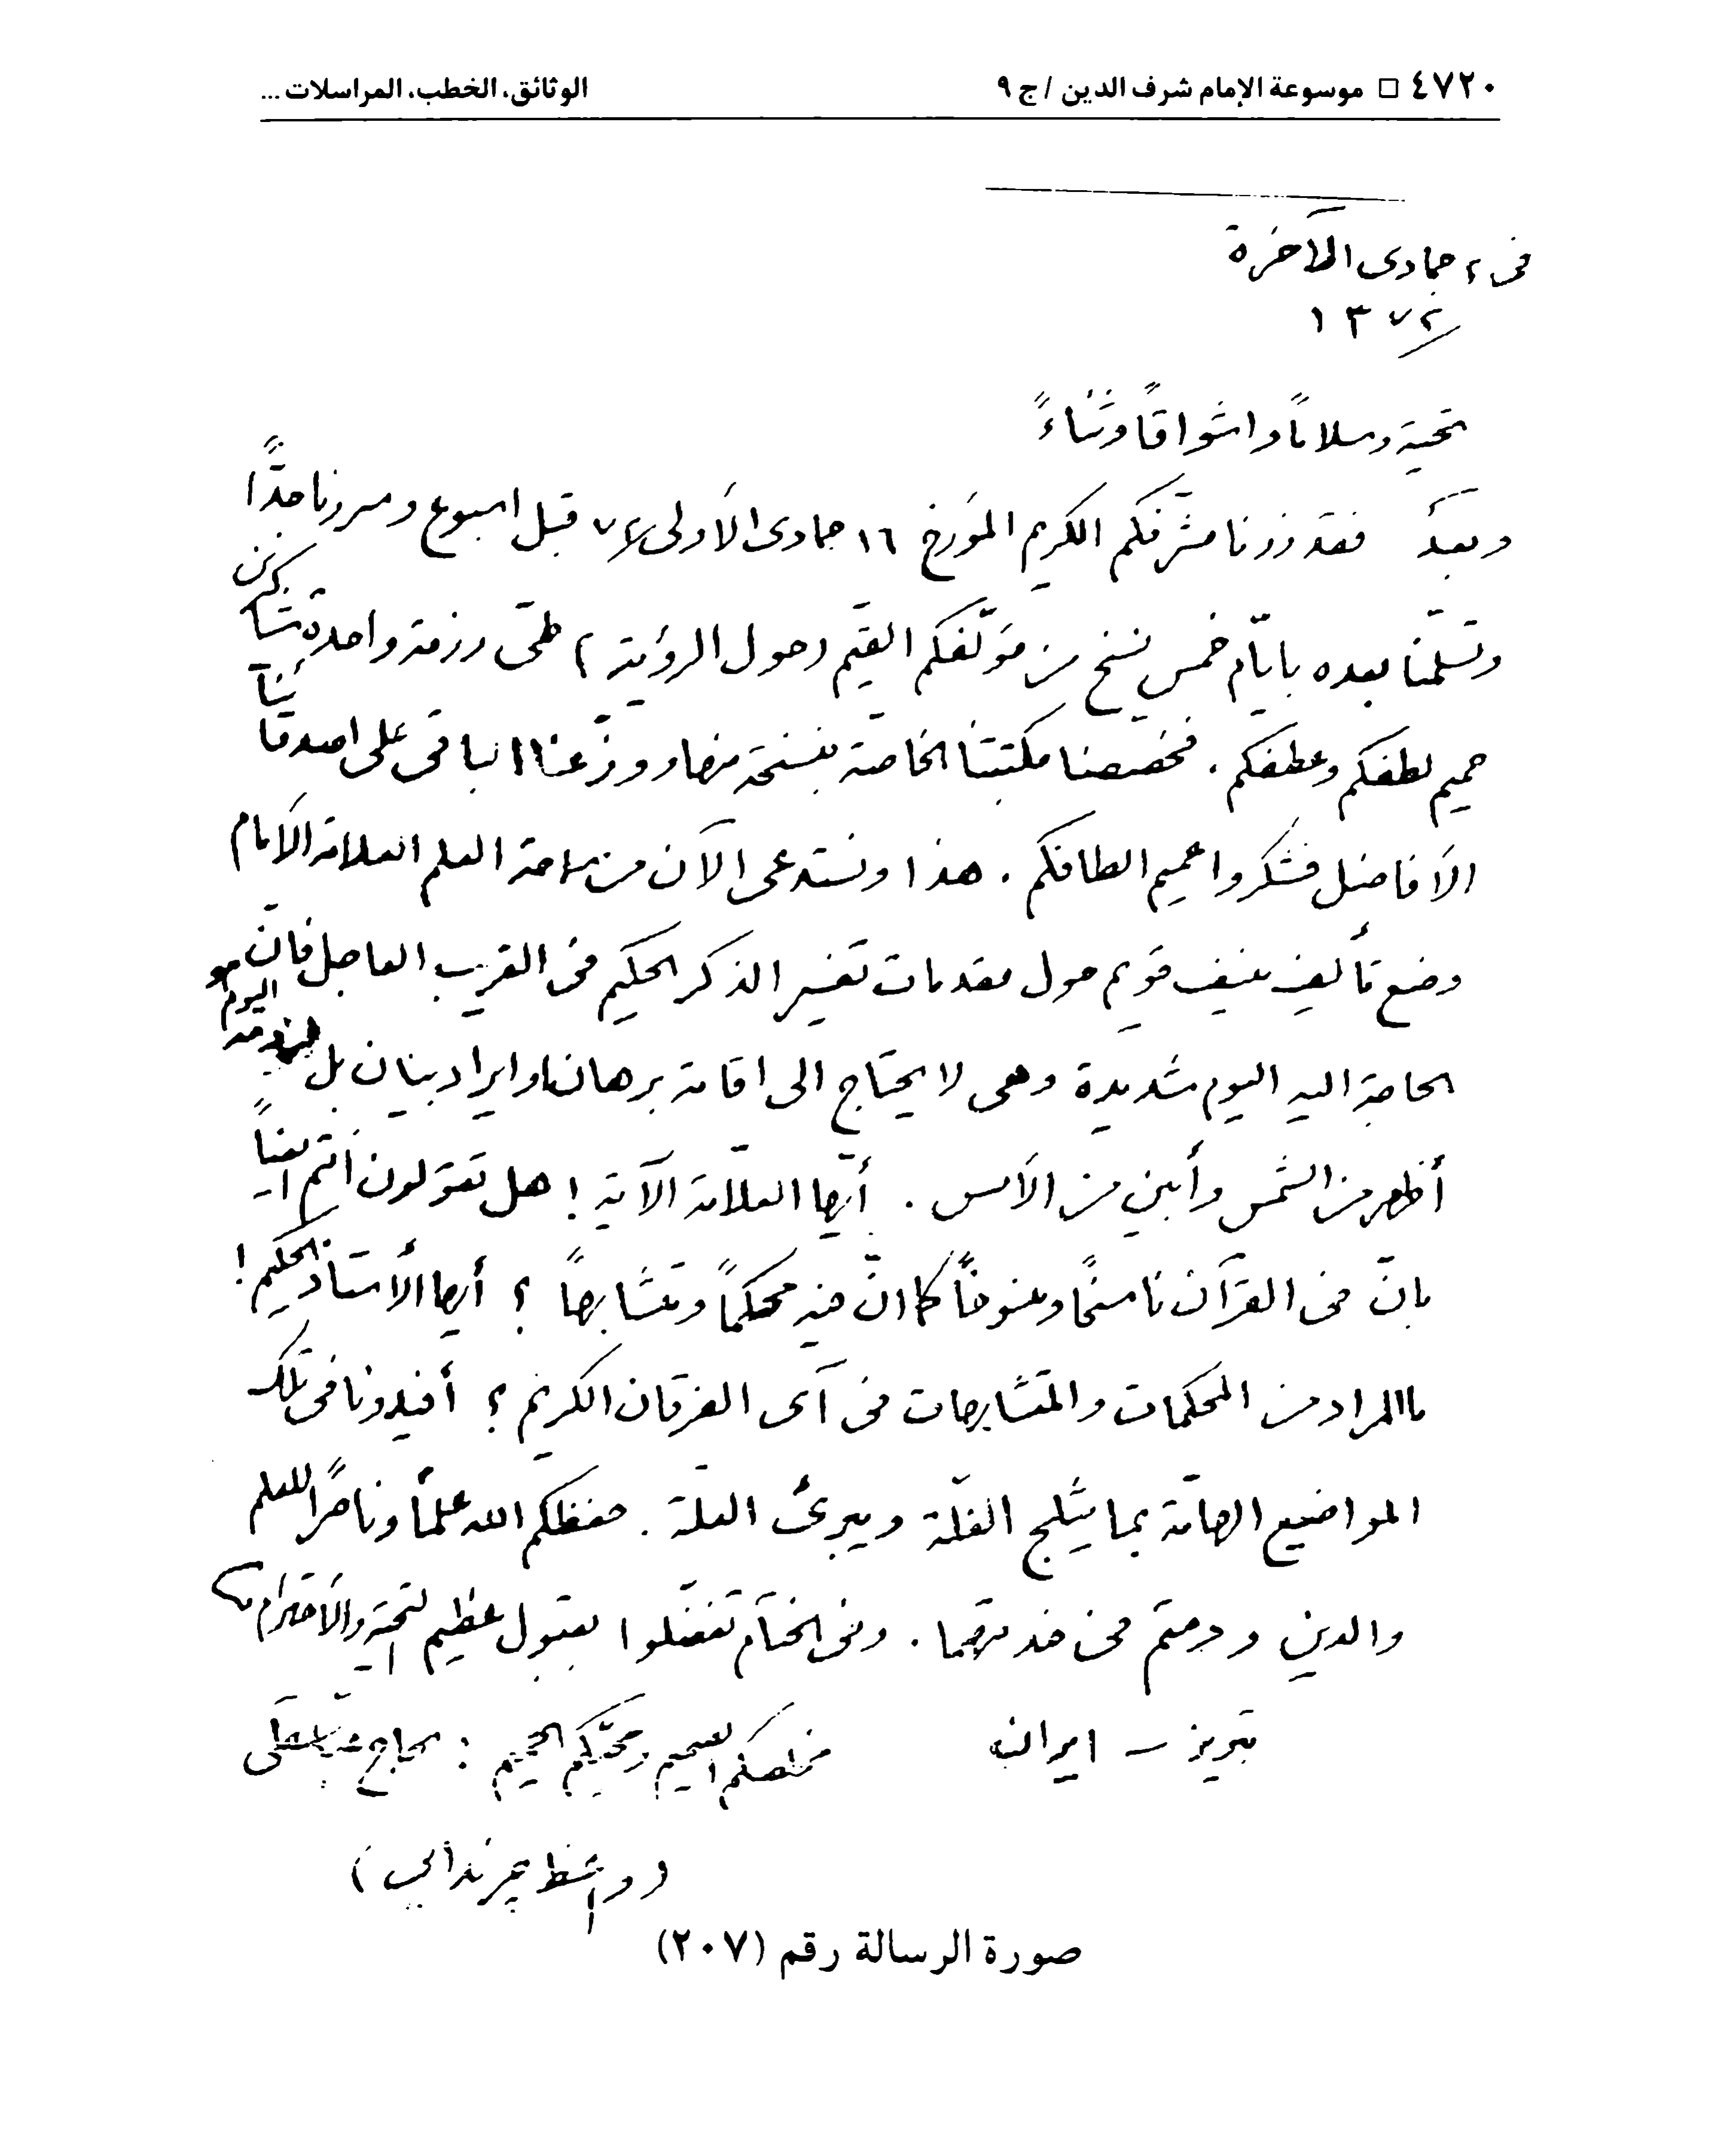 ٤٧٢٠ □ موسوعة الإمام شرف الدين / ج ٩ الوثائق، الخطب، المراسلات ...
فى ٢ جمادى الآخرة
١٣٧٢
تحية وسلاماً واشواقاً وثناءً
وبعدُ فقد زرنا مشرّفكم الكريم المؤرخ ١٦ جمادى الأولى ٧٢ قبل اسبوع وسررنا جدًّا
وتسلّمنا بعده بايّام خمس نسخ من مؤلّفكم القيّم (حول الرؤية) طىّ رزمة واحدة شاكرين
عميم لطفكم وعطفكم. فخصّصنا مكتبتنا الخاصة بنسخة منها ووزّعنا الباقى على اصدقائنا
الأفاضل فشكروا عميم الطافكم. هذا ونستدعى الآن من سماحة العلم العلامة الامام
وضع تأليف منيف قويم حول مقدمات تفسير الذكر الحكيم فى القريب العاجل فانّ
الحاجة اليه اليوم شديدة وهى لا يحتاج الى اقامة برهان وايراد بينان بل هو اليوم
أظهر من الشمس وأبين من الأمس. أيّها العلّامة الآية! هل تقولون انتم ايضاً
بانّ فى القرآن ناسخًا ومنسوخاً كما انّ فيه محكماً ومتشابهاً؟ أيها الأستاذ الحكيم!
ما المراد من المحكمات والمتشابهات فى آى الفرقان الكريم؟ أفيدونا فى تلك
المواضيع الهامّة بما يثلج الغلّة ويبرئ العلّة. حفظكم الله علماً وناصرًا للعلم
والدين ودمتم فى خدمتهما. وفى الختام تفضّلوا بقبول عظيم التحية والاحترام
تبريز ـ ايران مخلصكم الصميم ومحبّكم الحميم: الحاج
(واعظ چرندابى)
صورة الرسالة رقم (٢٠٧)